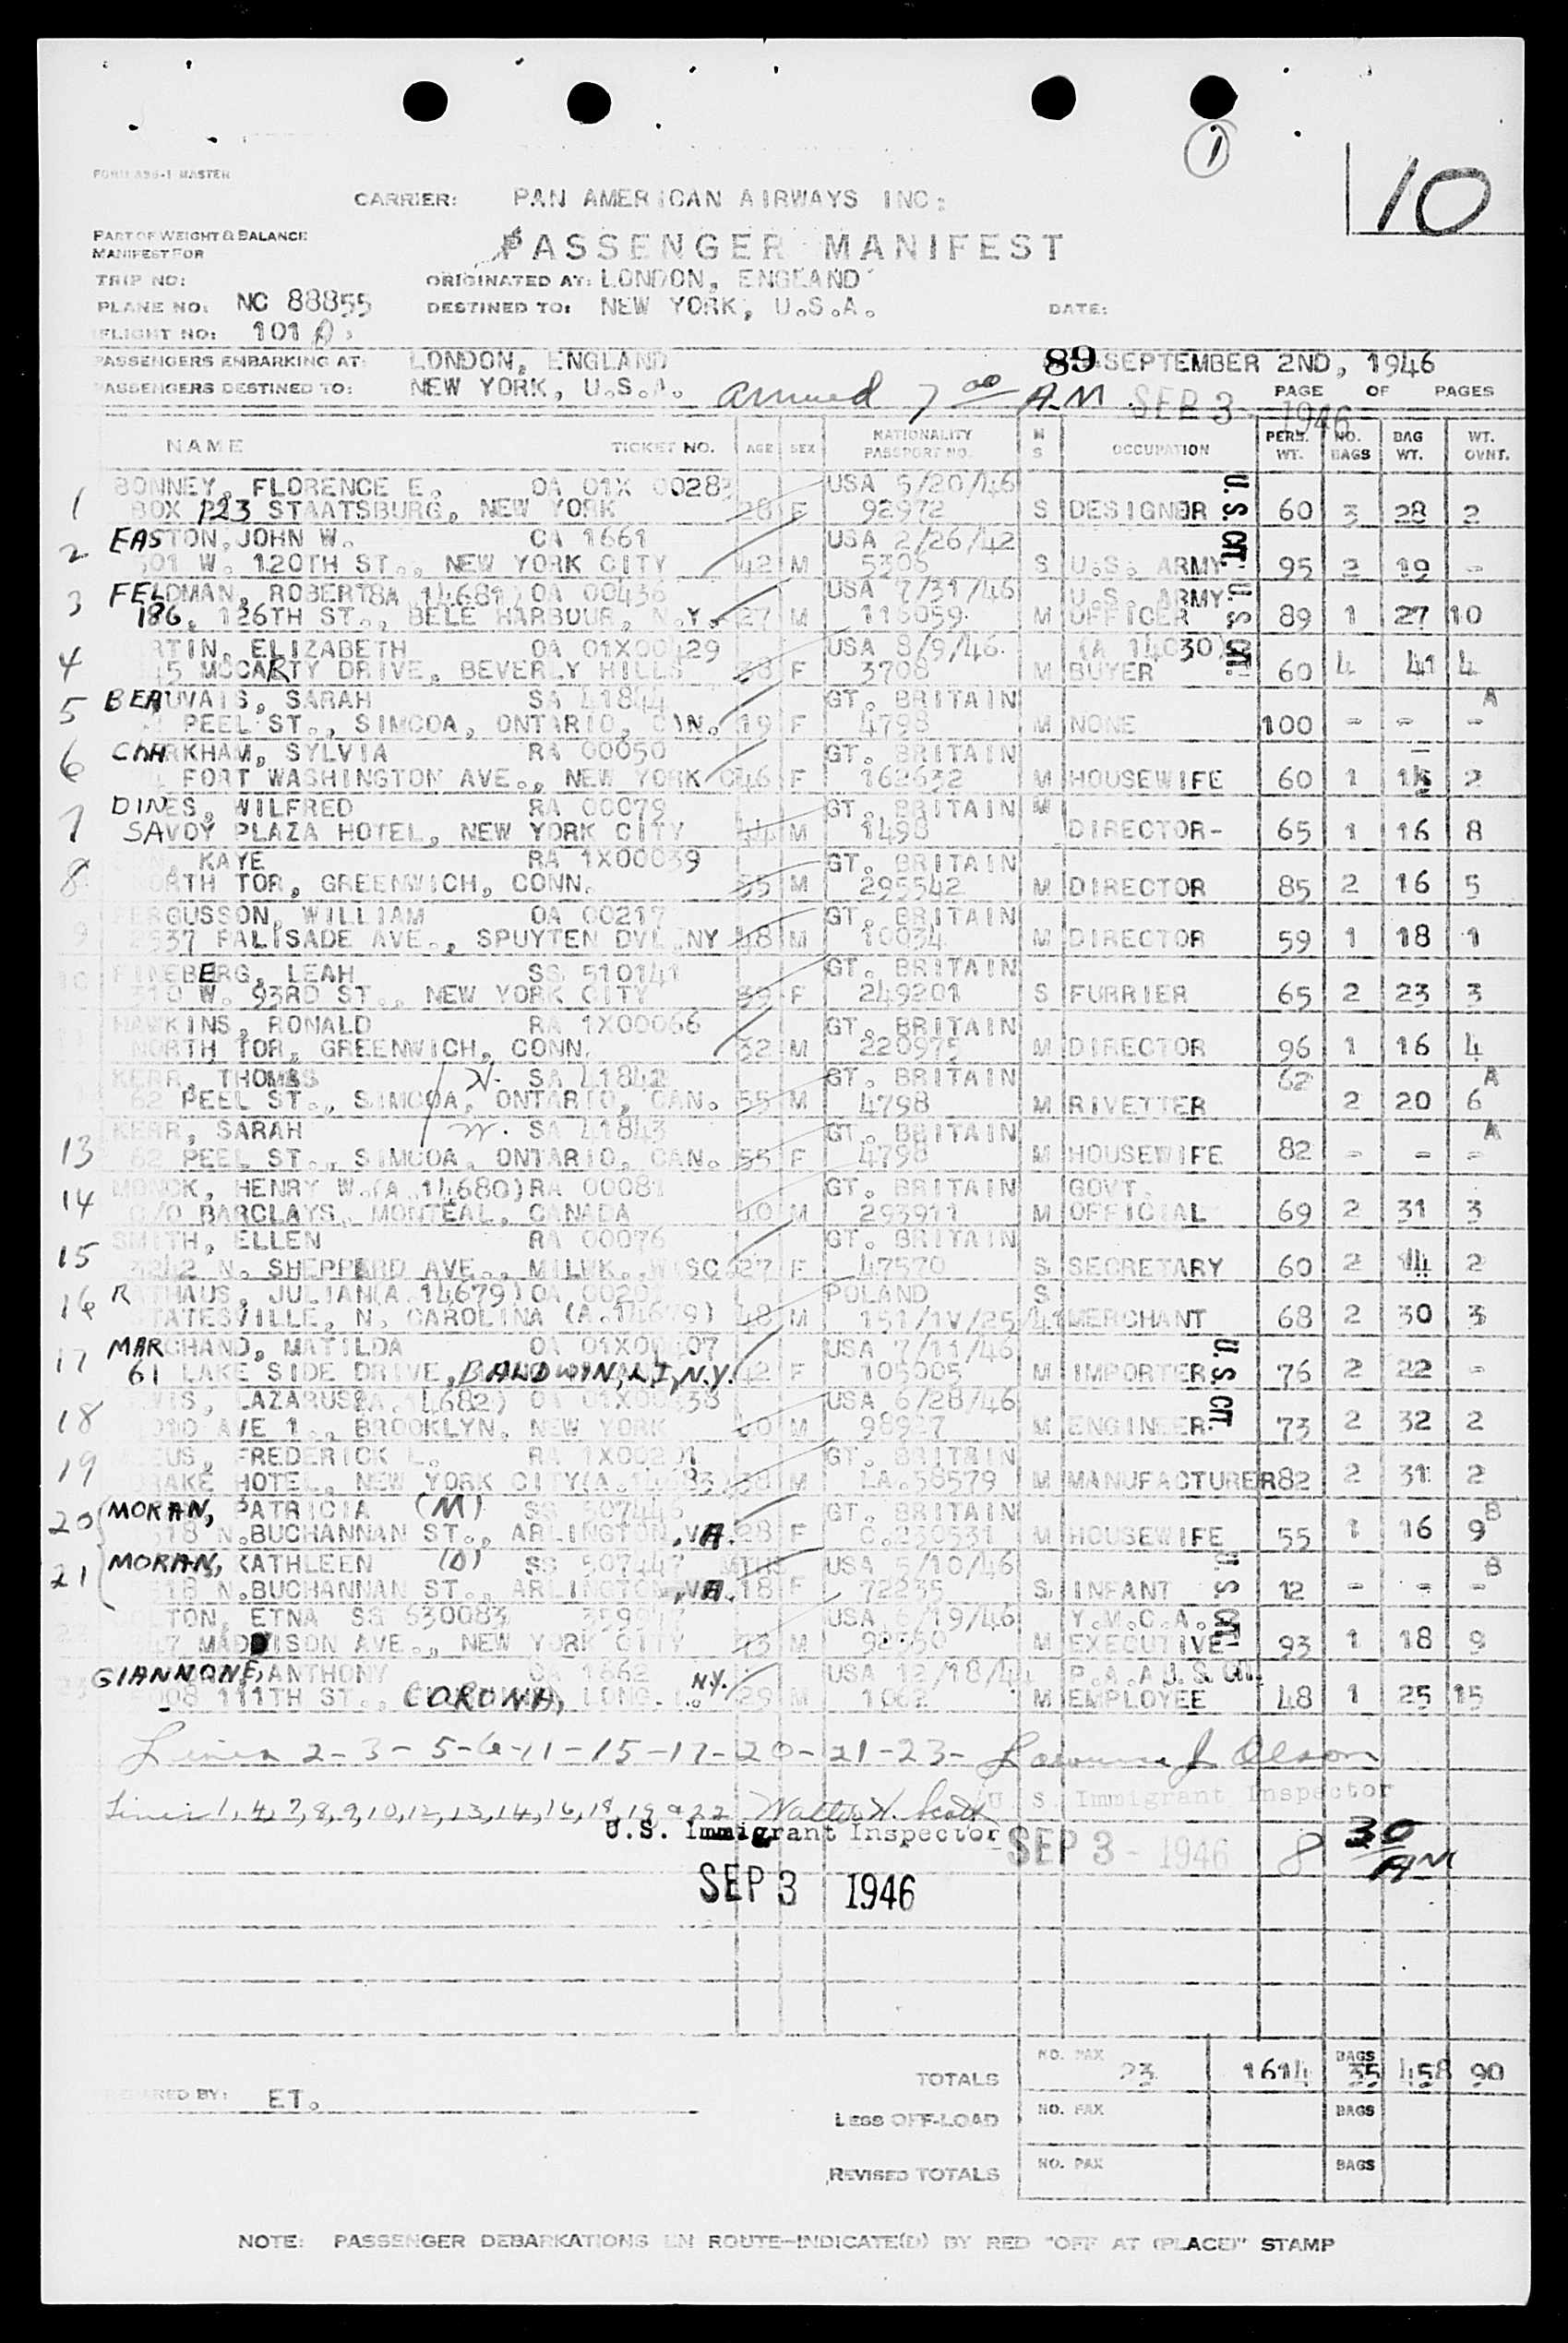 1
10
FORM ASS-1 MASTER
CARRIER: PAN AMERICAN AIRWAYS INC:
PART OF WEIGHT & BALANCE
MANIFEST FOR
PASSENGER MANIFEST
TRIP NO: ORIGINATED AT: LONDON, ENGLAND
PLANE NO: NC 88855 DESTINED TO: NEW YORK, U.S.A. DATE:
FLIGHT NO: 101 A
PASSENGERS EMBARKING AT: LONDON, ENGLAND 89 SEPTEMBER 2ND, 1946
PASSENGERS DESTINED TO: NEW YORK, U.S.A. arrived 7 00 A.M. SEP 3 - 1946 PAGE OF PAGES
NAME TICKET NO. AGE SEX NATIONALITY PASSPORT NO. M S OCCUPATION PERS. WT. NO. BAGS BAG WT. WT. OVNT.
BONNEY, FLORENCE E. OA 01X 0028 USA 5/20/46 U.S. CIT.
1 BOX P23 STAATSBURG, NEW YORK 28 F 92972 S DESIGNER 60 3 28 2
EASTON, JOHN W. OA 1661 USA 2/26/42
2 501 W. 120TH ST., NEW YORK CITY 42 M 5306 S U.S. ARMY 95 2 19 -
FELDMAN, ROBERT (A 14681) OA 00436 USA 7/31/46 U.S. ARMY U.S. CIT.
3 186, 126TH ST., BELE HARBOUR, N.Y. 27 M 116059 M OFFICER 89 1 27 10
RTIN, ELIZABETH OA 01X00429 USA 8/9/46 (A 14030)
4 45 MCCARTY DRIVE, BEVERLY HILLS 38 F 3708 M BUYER 60 4 41 4
BEAUVAIS, SARAH SA 41844 GT. BRITAIN A
5 PEEL ST., SIMCOA, ONTARIO, CAN. 19 F 4798 M NONE 100 - - -
CHARKHAM, SYLVIA RA 00050 GT. BRITAIN
6 FORT WASHINGTON AVE., NEW YORK C 46 F 162632 M HOUSEWIFE 60 1 2
DINES, WILFRED RA 00079 GT. BRITAIN M
7 SAVOY PLAZA HOTEL, NEW YORK CITY 44 M 1498 DIRECTOR- 65 1 16 8
KAYE RA 1X00039 GT. BRITAIN
8 NORTH TOR, GREENWICH, CONN. 55 M 295542 M DIRECTOR 85 2 16 5
FERGUSSON, WILLIAM OA 00217 GT. BRITAIN
9 2537 PALISADE AVE., SPUYTEN DVL NY 48 M 10034 M DIRECTOR 59 1 18 1
FINEBERG, LEAH SS 510141 GT. BRITAIN
10 310 W. 93RD ST., NEW YORK CITY 39 F 249201 S FURRIER 65 2 23 3
HAWKINS, RONALD RA 1X00066 GT. BRITAIN
NORTH TOR, GREENWICH, CONN. 32 M 220975 M DIRECTOR 96 1 16 4
KERR, THOMAS SA 41842 GT. BRITAIN 62 A
62 PEEL ST., SIMCOA, ONTARIO, CAN. 55 M 4798 M RIVETTER 2 20 6
KERR, SARAH SA 41843 GT. BRITAIN A
13 62 PEEL ST., SIMCOA, ONTARIO, CAN. 55 F 4798 M HOUSEWIFE 82 - - -
MONCK, HENRY W. (A 14680) RA 00081 GT. BRITAIN GOVT.
14 C/O BARCLAYS, MONTEAL, CANADA 40 M 293911 M OFFICIAL 69 2 31 3
SMITH, ELLEN RA 00076 GT. BRITAIN
15 3242 N. SHEPPERD AVE., MILWK., WISC 27 F 47570 S SECRETARY 60 2 14 2
RATHAUS, JULIAN (A 14679) OA 0020 POLAND S
16 STATESVILLE, N. CAROLINA (A.14679) 48 M 151/1V/25/41 MERCHANT 68 2 30 3
MARCHAND, MATILDA OA 01X00407 USA 7/11/46 U.S. CIT.
17 61 LAKE SIDE DRIVE, BALDWIN, L.I, N.Y. 42 F 105005 M IMPORTER 76 2 22 -
VIS, LAZARUS (A.14682) OA 01X00438 USA 6/28/46
18 2ND AVE 1., BROOKLYN, NEW YORK 40 M 98927 M ENGINEER 73 2 32 2
EUS, FREDERICK L. RA 1X00201 GT. BRITAIN
19 DRAKE HOTEL, NEW YORK CITY (A.14683) 38 M LA.58579 M MANUFACTURER 82 2 31 2
MORAN, PATRICIA (M) SS 507446 GT. BRITAIN B
20 518 N.BUCHANNAN ST., ARLINGTON, VA. 28 F C.230531 M HOUSEWIFE 55 1 16 9
MORAN, KATHLEEN (D) SS 507447 MTHS USA 5/10/46 U.S. CIT. B
21 518 N.BUCHANNAN ST., ARLINGTON, VA. 18 F 72235 S INFANT 12 - - -
TON, ETNA SS 630083 USA /19/46 Y.M.C.A.
47 MADDISON AVE., NEW YORK CITY M 92550 M EXECUTIVE 93 1 18 9
GIANNONE, ANTHONY OA 1662 N.Y. USA 12/18/44 P.A.A U.S. CIT.
23 5008 111TH ST., CORONA, LONG. I. 29 M 1062 M EMPLOYEE 48 1 25 15
Lines 2-3-5-6-11-15-17-20-21-23- Lawrence J Olson
Lines 1, 4, 7, 8, 9, 10, 12, 13, 14, 16, 18, 19 & 22 Walter H. Scott U.S. Immigrant Inspector
U.S. Immigrant Inspector SEP 3 - 1946 8 30 AM
SEP 3 1946
TOTALS NO. PAX 23 1614 BAGS 35 458 90
PREPARED BY: ET.
LESS OFF-LOAD NO. PAX BAGS
REVISED TOTALS NO. PAX BAGS
NOTE: PASSENGER DEBARKATIONS EN ROUTE-INDICATE(D) BY RED "OFF AT (PLACE)" STAMP